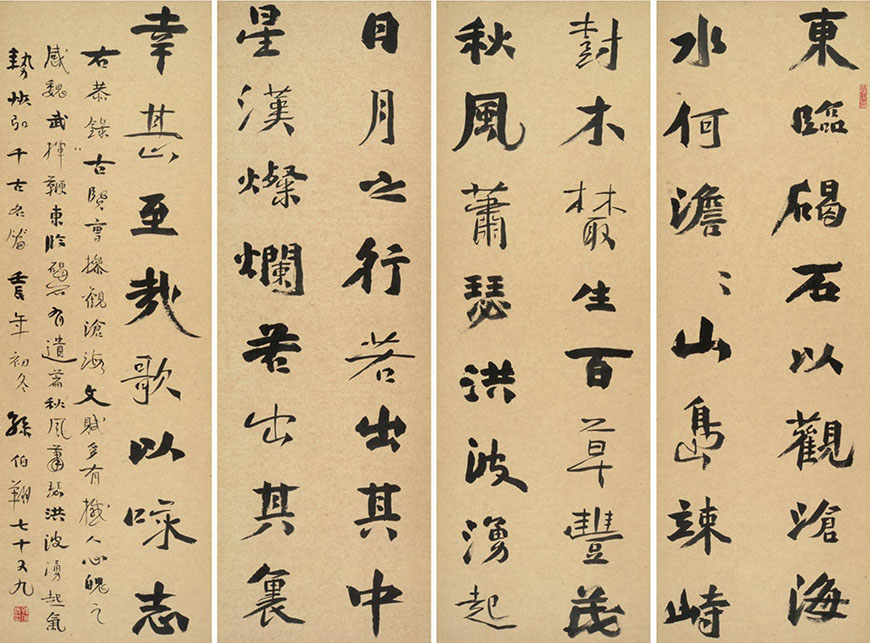 東臨碣石以觀滄海
水何澹〻山島竦峙
尌木叢生百草豐茂
秋風蕭瑟洪波湧起
日月之行若出其中
星漢燦爛若出其裏
幸甚至哉歌以咏志
右恭錄古賢曹操觀滄海文賦多有撼人心魄之
感魏武揮鞭東臨碣石有遺篇秋風蕭瑟洪波湧起氣
勢恢弘千古名篇壬辰年初冬孫伯翔七十又九